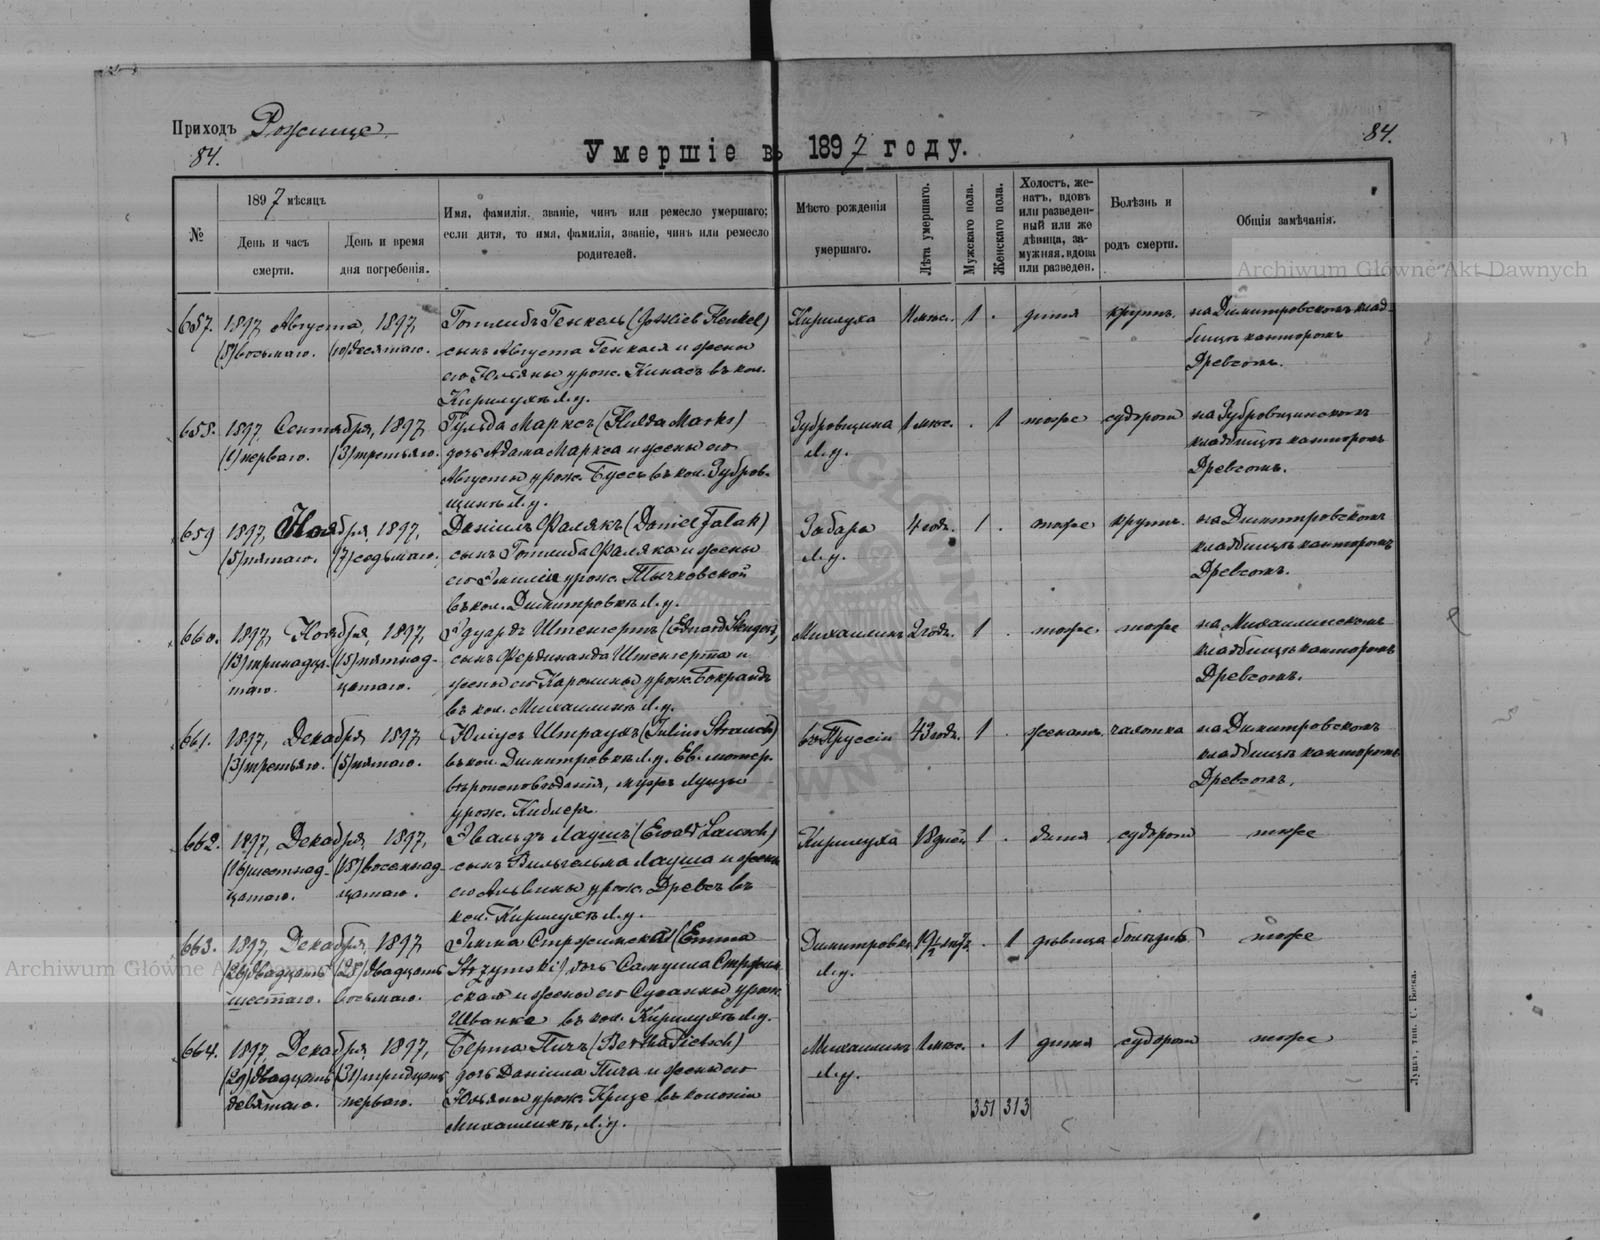 Приходъ Рожище
84.
84.
Умершіе въ 1897 году.
№
1897 мѣсяцъ
День и часъ
смерти.
День и время
дня погребенія.
Имя, фамилія, званіе, чинъ или ремесло умершаго;
если дитя, то имя, фамилія, званіе, чинъ или ремесло
родителей.
Мѣсто рожденія
умершаго.
Лѣта умершаго.
Мужскаго пола.
Женскаго пола.
Холостъ, же-
натъ, вдовъ
или разведен-
ный или же
дѣвица, за-
мужняя, вдова
или разведен.
Болѣзнь и
родъ смерти.
Общія замѣчанія.
657. 1897 Августа, 1897, Готлибъ Генкель (Gottlieb Henkel) Кирилуха 11 мѣс. 1 . дитя крупъ. на Димитровскомъ клад-
(8) восьмаго. (10) десятаго. сынъ Августа Генкеля и жены бищѣ канторомъ
его Юліяны урож. Кинасъ въ кол. Древсомъ.
Кирилухѣ Л.у.
658. 1897, Сентября, 1897, Гульда Марксъ (Hulda Marks) Зубровщина 1 мѣс. . 1 тоже судороги на Зубровщинскомъ
(1) перваго. (3) третьяго. дочь Адама Маркса и жены его Л.у. кладбищѣ канторомъ
Августы урож. Буссъ въ кол. Зубров- Древсомъ.
щинѣ Л.у.
659. 1897, Ноября, 1897, Даніилъ Фалякъ (Daniel Falak) Забара 4 год. 1 . тоже крупъ. на Димитровскомъ
(5) пятаго. (7) седьмаго. сынъ Готлиба Фаляка и жены Л.у. кладбищѣ канторомъ
его Эмиліи урож. Тычковской Древсомъ.
въ кол. Димитровкѣ Л.у.
660. 1897, Ноября, 1897, Эдуардъ Штенгертъ (Eduard Stengert), Михаилинъ 2 год. 1 . тоже. тоже на Михаилинскомъ
(13) тринадца- (15) пятнад- сынъ Фердинанда Штенгерта и кладбищѣ канторомъ
таго. цатаго. жены его Каролины урож. Бокрандъ Древсомъ.
въ кол. Михаилинѣ Л.у.
661. 1897, Декабря, 1897 Юліусъ Штраухъ (Julius Strauch) въ Пруссіи 43 год. 1 . женатъ. чахотка на Димитровскомъ
(3) третьяго. (5) пятаго. въ кол. Димитровкѣ Л.у. Ев. лютер. кладбищѣ канторомъ
вѣроисповѣданія, мужъ Луизы Древсомъ.
урож. Киблеръ
662. 1897, Декабря, 1897, Эвальдъ Лаушъ (Ewald Lausch) Кирилуха 18 дней 1 . дитя судороги тоже
(16) шестнад- (18) восемнад- сынъ Вильгельма Лауша и жены
цатаго. цатаго. его Альвины урож. Древсъ въ
кол. Кирилухѣ Л.у.
663. 1897, Декабря, 1897 Эмма Стржимская (Emma Димитровка 19½ . 1 дѣвица тоже
(26) двадцать (28) двадцать Strzymski) дочь Самуила Стржим-
шестаго. восьмаго. скаго и жены его Сузанны урож.
Шванке въ кол. Кирилухѣ Л.у. Л.у.
664. 1897, Декабря, 1897, Берта Пичъ (Bertha Pietsch) Михаилинъ 1 мѣс. . 1 дитя судороги тоже
(29) двадцать (31) тридцать дочь Даніила Пича и жены его Л.у.
девятаго. перваго. Юліяны урож. Кризе въ колоніи
Михаилинѣ, Л.у.
351 313
Луцкъ, тип. С. Боска.
Archiwum Główne Akt Dawnych
Archiwum Główne Akt Dawnych